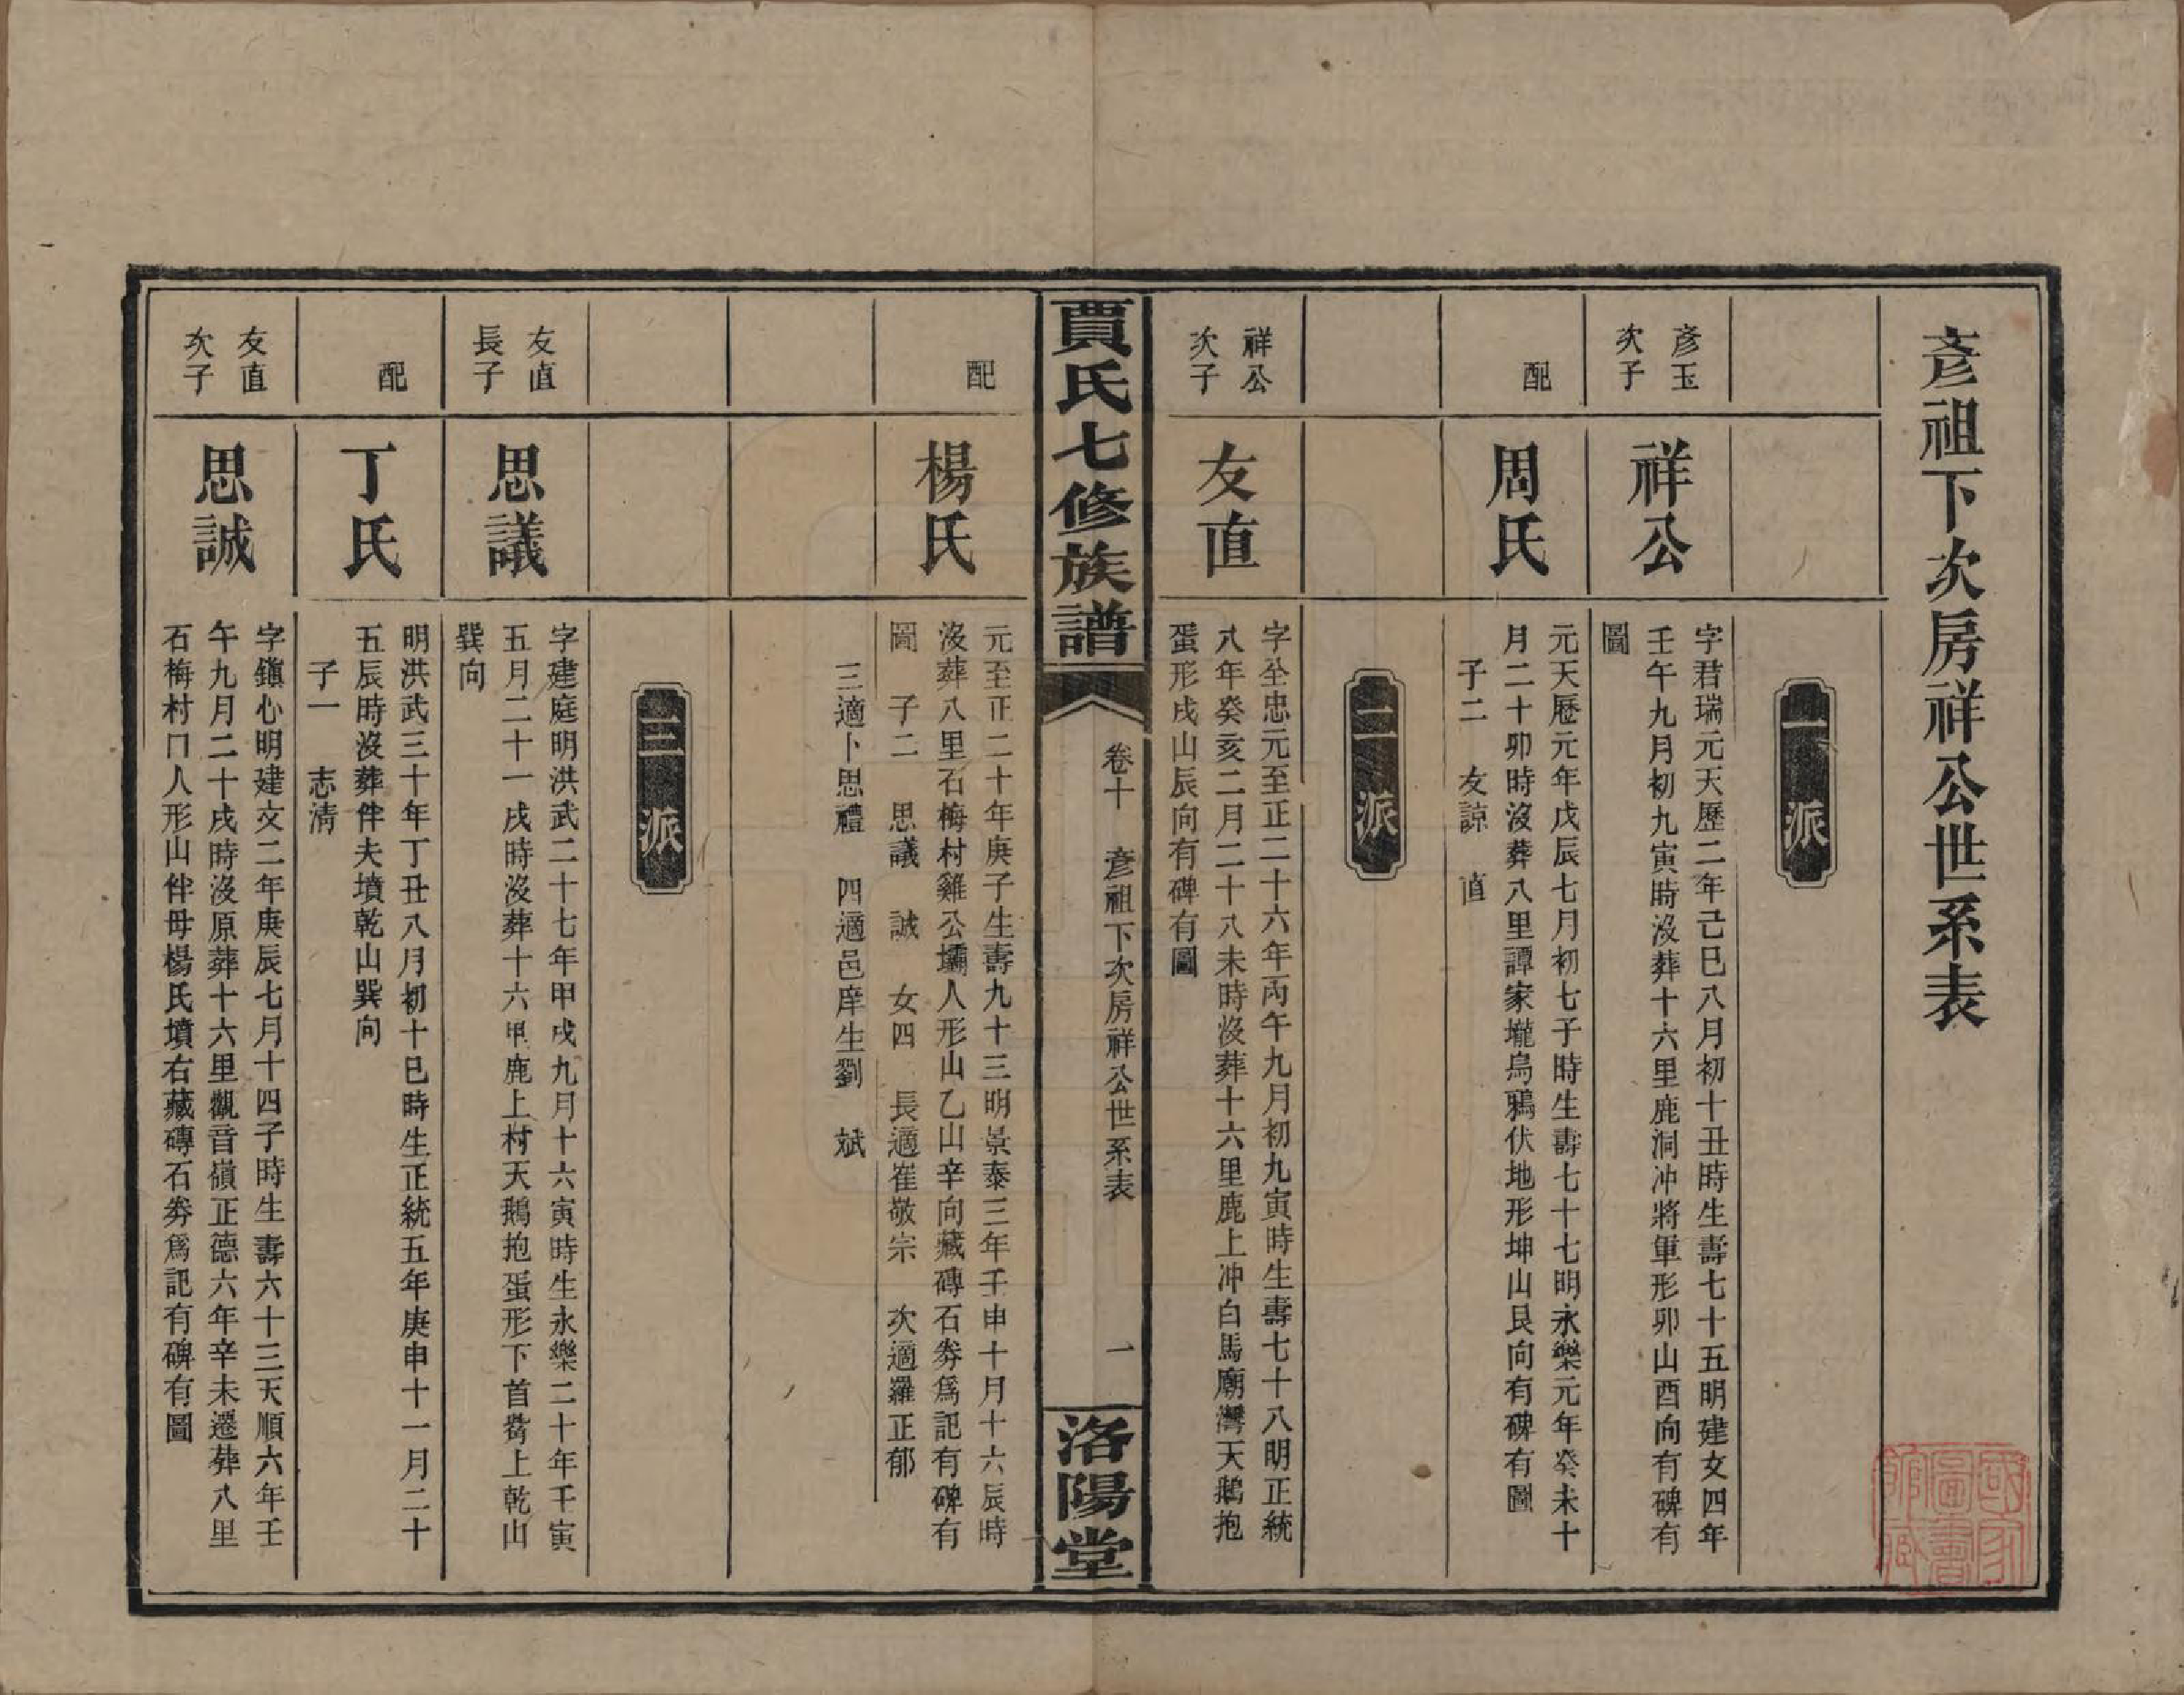 彥祖下次房祥公世系表
一派
彥玉
次子
祥公
字君瑞元天歷二年己巳八月初十丑時生壽七十五明建文四年
壬午九月初九寅時沒葬十六里鹿洞冲將軍形卯山酉向有碑有
圖
配
周氏
元天歷元年戊辰七月初七子時生壽七十七明永樂元年癸未十
月二十卯時沒葬八里譚家壠烏鴉伏地形坤山艮向有碑有圖
子二 友諒 直
二派
祥公
次子
友直
字全忠元至正二十六年丙午九月初九寅時生壽七十八明正統
八年癸亥二月二十八未時沒葬十六里鹿上冲白馬廟灣天鵝抱
蛋形戌山辰向有碑有圖
賈氏七修族譜
卷十 彥祖下次房祥公世系表 一
洛陽堂
配
楊氏
元至正二十年庚子生壽九十三明景泰三年壬申十月十六辰時
沒葬八里石梅村雞公壩人形山乙山辛向藏磚石劵爲記有碑有
圖 子二 思議 誠 女四 長適崔敬宗 次適羅正郁
三適卜思禮 四適邑庠生劉 斌
三派
友直
長子
思議
字建庭明洪武二十七年甲戌九月十六寅時生永樂二十年壬寅
五月二十一戌時沒葬十六甲鹿上村天鵝抱蛋形下首嘴上乾山
巽向
配
丁氏
明洪武三十年丁丑八月初十巳時生正統五年庚申十一月二十
五辰時沒葬伴夫墳乾山巽向
子一 志清
友直
次子
思誠
字鎭心明建文二年庚辰七月十四子時生壽六十三天順六年壬
午九月二十戌時沒原葬十六里觀音嶺正德六年辛未遷葬八里
石梅村口人形山伴母楊氏墳右藏磚石劵爲記有碑有圖
國家
圖書
館藏